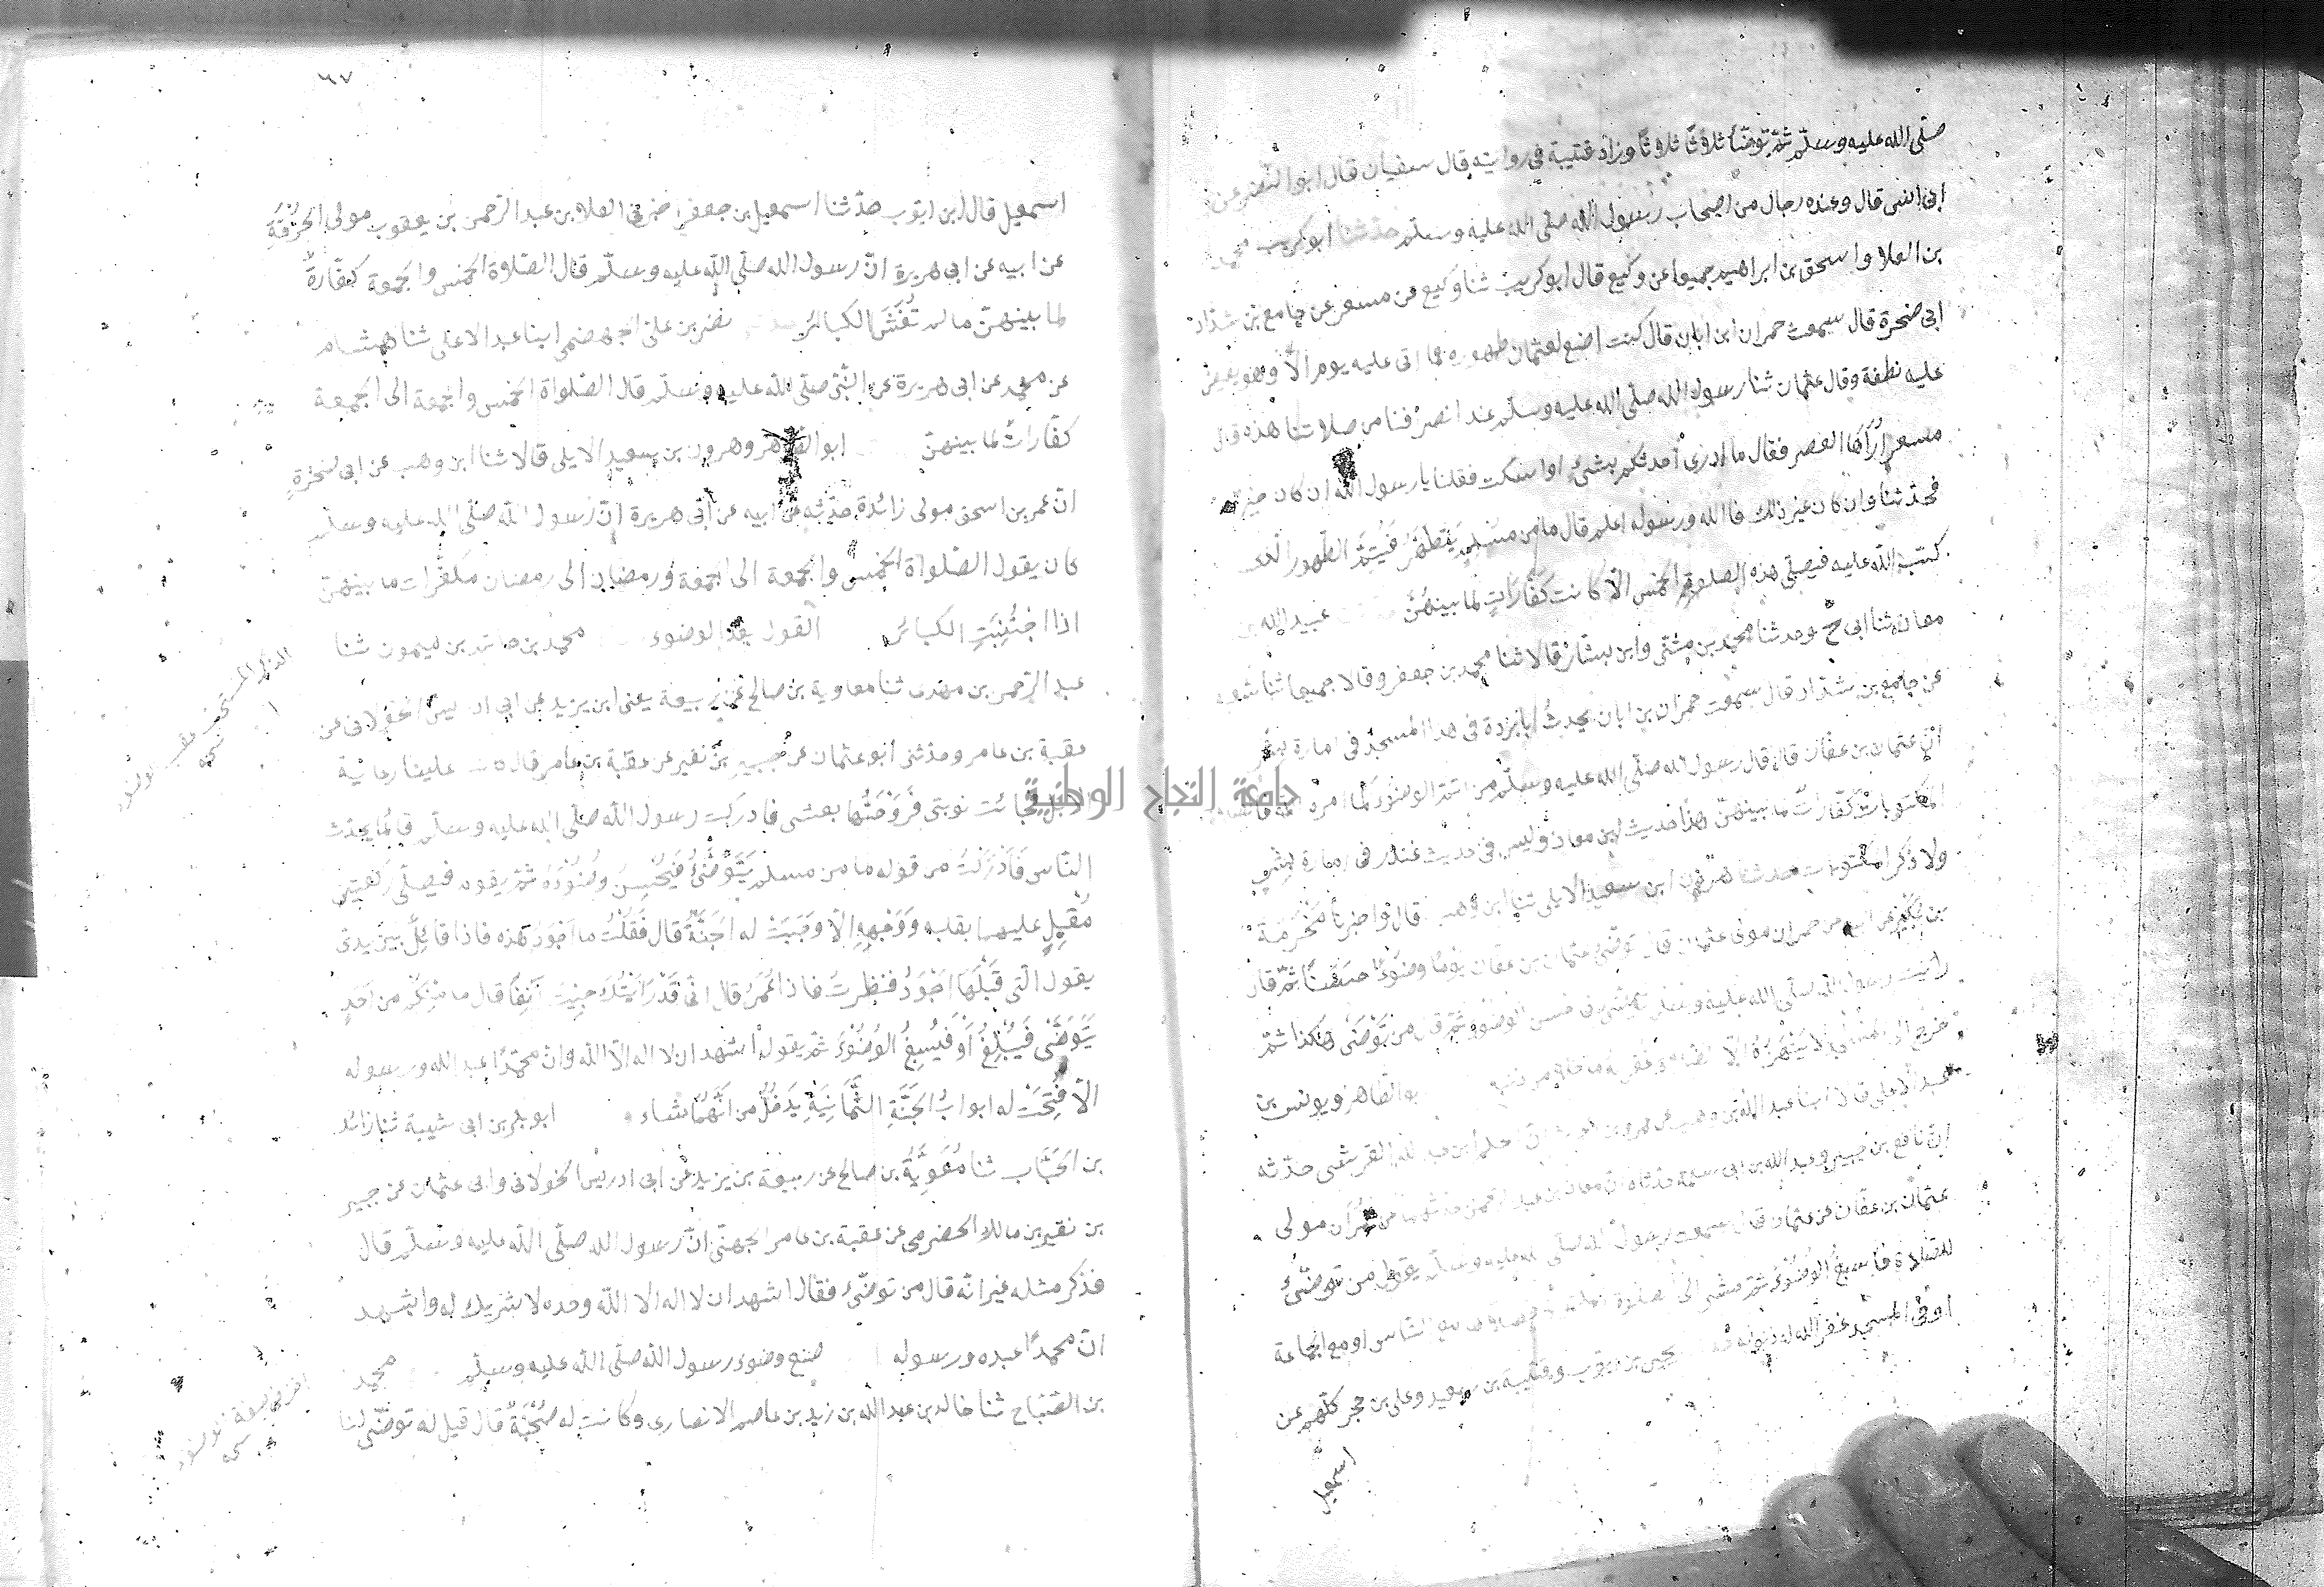 صلى الله عليه وسلم ثم توضأ ثلاثا ثلاثا وزاد قتيبة في روايته قال سفيان قال ابو النضر عن
ابي انس قال وعنده رجال من اصحاب رسول الله صلى الله عليه وسلم حدثنا ابو كريب محمد
بن العلا واسحق بن ابراهيم جميعا عن وكيع قال ابو كريب ثنا وكيع عن مسعر عن جامع بن شداد
ابي صخرة قال سمعت حمران ابن ابان قال كنت اضع لعثمان طهوره فما اتى عليه يوم الا وهو يفيض
عليه نطفة وقال عثمان ثنا رسول الله صلى الله عليه وسلم عند انصرافنا من صلاتنا هذه قال
مسعر اراها العصر فقال ما ادرى أحدثكم بشئ او اسكت فقلنا يا رسول الله ان كان خيرا
فحدثنا وان كان غير ذلك فالله ورسوله اعلم قال ما من مسلم يتطهر فيتم الطهور الذى
كتب الله عليه فيصلي هذه الصلوة الخمس الا كانت كفارات لما بينهن عبيد الله بن
معاذ ثنا ابي ح وحدثنا محمد بن مثنى وابن بشار قالا ثنا محمد بن جعفر وقالا جميعا ثنا شعبه
عن جامع بن شداد قال سمعت حمران بن ابان يحدث ابا بردة في هذا المسجد في امارة بشر
ان عثمان بن عفان قال قال رسول الله صلى الله عليه وسلم من اتم الوضوء كما امره الله فالصلوات
المكتوبات كفارات ما بينهن هذا حديث ابن معاذ وليس في حديث غندر في امارة بشر
ولا ذكر المكتوبات حدثنا هرون ابن سعيد الايلي ثنا ابن وهب قال واخبرنا مخرمة
بن بكير عن ابيه عن حمران مولى عثمان قال توضئ عثمان بن عفان يوما وضوءا حسنا ثم قال
رايت رسول الله صلى الله عليه وسلم توضئ فاحسن الوضوء ثم قال من توضى هكذا ثم
خرج الى المسجد لا ينهزه الا الصلاة غفر له ما خلا من ذنبه بو الطاهر ويونس بن
عبد الاعلى قالا ابنا عبد الله بن وهب عن عمرو بن الحرث ان الحكيم ابن عبد الله القرشى حدثه
ان نافع بن جبير وعبد الله بن ابي سلمة حدثاه ان معاذ بن عبد الرحمن حدثهما عن حمران مولى
عثمان بن عفان عن عثمان قال سمعت رسول الله صلى الله عليه وسلم يقول من توضئ
للصلاة فاسبغ الوضوء ثم مشى الى الصلوة المكتوبة فصلاها مع الناس او مع الجماعة
او في المسجد غفر الله له ذنوبه يحيى بن ايوب وقتيبة بن سعيد وعلي بن حجر كلهم عن
اسمعيل
٦٧
اسمعيل قال ابن ايوب حدثنا اسمعيل بن جعفر اخبرني العلاء بن عبد الرحمن بن يعقوب مولى الحرقة
عن ابيه عن ابي هريرة ان رسول الله صلى الله عليه وسلم قال الصلاوة الخمس والجمعة كفارة
لما بينهن ما لم تغش الكبائر نصر بن علي الجهضمي ابنا عبد الاعلى ثنا هشام
عن محمد عن ابي هريرة عن النبي صلى الله عليه وسلم قال الصلواة الخمس والجمعة الى الجمعة
كفارات لما بينهن ابو الطاهر وهرون بن سعيد الايلي قالا ثنا ابن وهب عن ابي صخرة
ان عمر بن اسحق مولى زائدة حدثه عن ابيه عن ابي هريرة ان رسول الله صلى الله عليه وسلم
كان يقول الصلواة الخمس والجمعة الى الجمعة ورمضان الى رمضان مكفرات ما بينهن
اذا اجتنبت الكبائر القول بعد الوضوء محمد بن حاتم بن ميمون ثنا
عبد الرحمن بن مهدى ثنا معاوية بن صالح عن ربيعة يعنى ابن يزيد عن ابي ادريس الخولانى عن
عقبة بن عامر وحدثنى ابو عثمان عن جبير بن نفير عن عقبة بن عامر قال كانت علينا رعاية
الابل فجائت نوبتى فروحتها بعشى فادركت رسول الله صلى الله عليه وسلم قائما يحدث
الناس فادركت من قوله ما من مسلم يتوضئ فيحسن وضوءه ثم يقوم فيصلي ركعتين
مقبل عليهما بقلبه ووجهه الا وجبت له الجنة قال فقلت ما اجود هذه فاذا قائل بين يدى
يقول التي قبلها اجود فنظرت فاذا عمر قال انى قد رايتك جيت آنفا قال ما منكم من احد
يتوضى فيبلغ او فيسبغ الوضوء ثم يقول اشهد ان لا اله الا الله وان محمدا عبد الله ورسوله
الا فتحت له ابواب الجنة الثمانية يدخل من ايها شاء ابو بكر بن ابي شيبة ثنا زائد
بن الحباب ثنا معوية بن صالح عن ربيعة بن يزيد عن ابي ادريس الخولانى وابى عثمان عن جبير
بن نفير بن مالك الحضرمي عن عقبة بن عامر الجهنى ان رسول الله صلى الله عليه وسلم قال
فذكر مثله غير انه قال من توضئ فقال اشهد ان لا اله الا الله وحده لا شريك له واشهد
ان محمدا عبده ورسوله صنع وضوء رسول الله صلى الله عليه وسلم محمد
بن الصباح ثنا خالد بن عبد الله بن زيد بن عاصم الانصارى وكانت له صحبة قال قيل له توضئ لنا
الذكر المستحب عقب الوضوء
نسخه
جامعة النجاح الوطنية